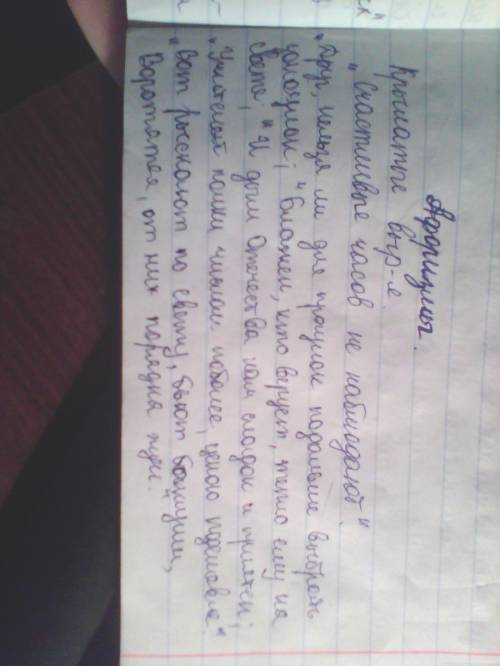 Афоризмы.
Крылатые выр-я.
"Счастливые часов не наблюдают".
"Друг, нельзя ли для прогулок подальше выбрать
закоулок;" "Блажен, кто верует, тепло ему на
свете;" "И дым Отечества нам сладок и приятен;
"Учителей полки числом поболее, ценою подешевле"
"Вот рыскают по свету, бьют баклуши,
Воротятся, от них порядка жди".